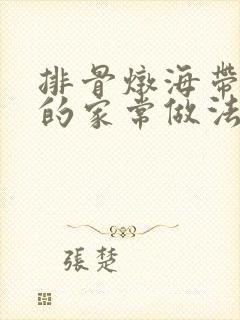 排骨燉海帶
的家常做法
張楚